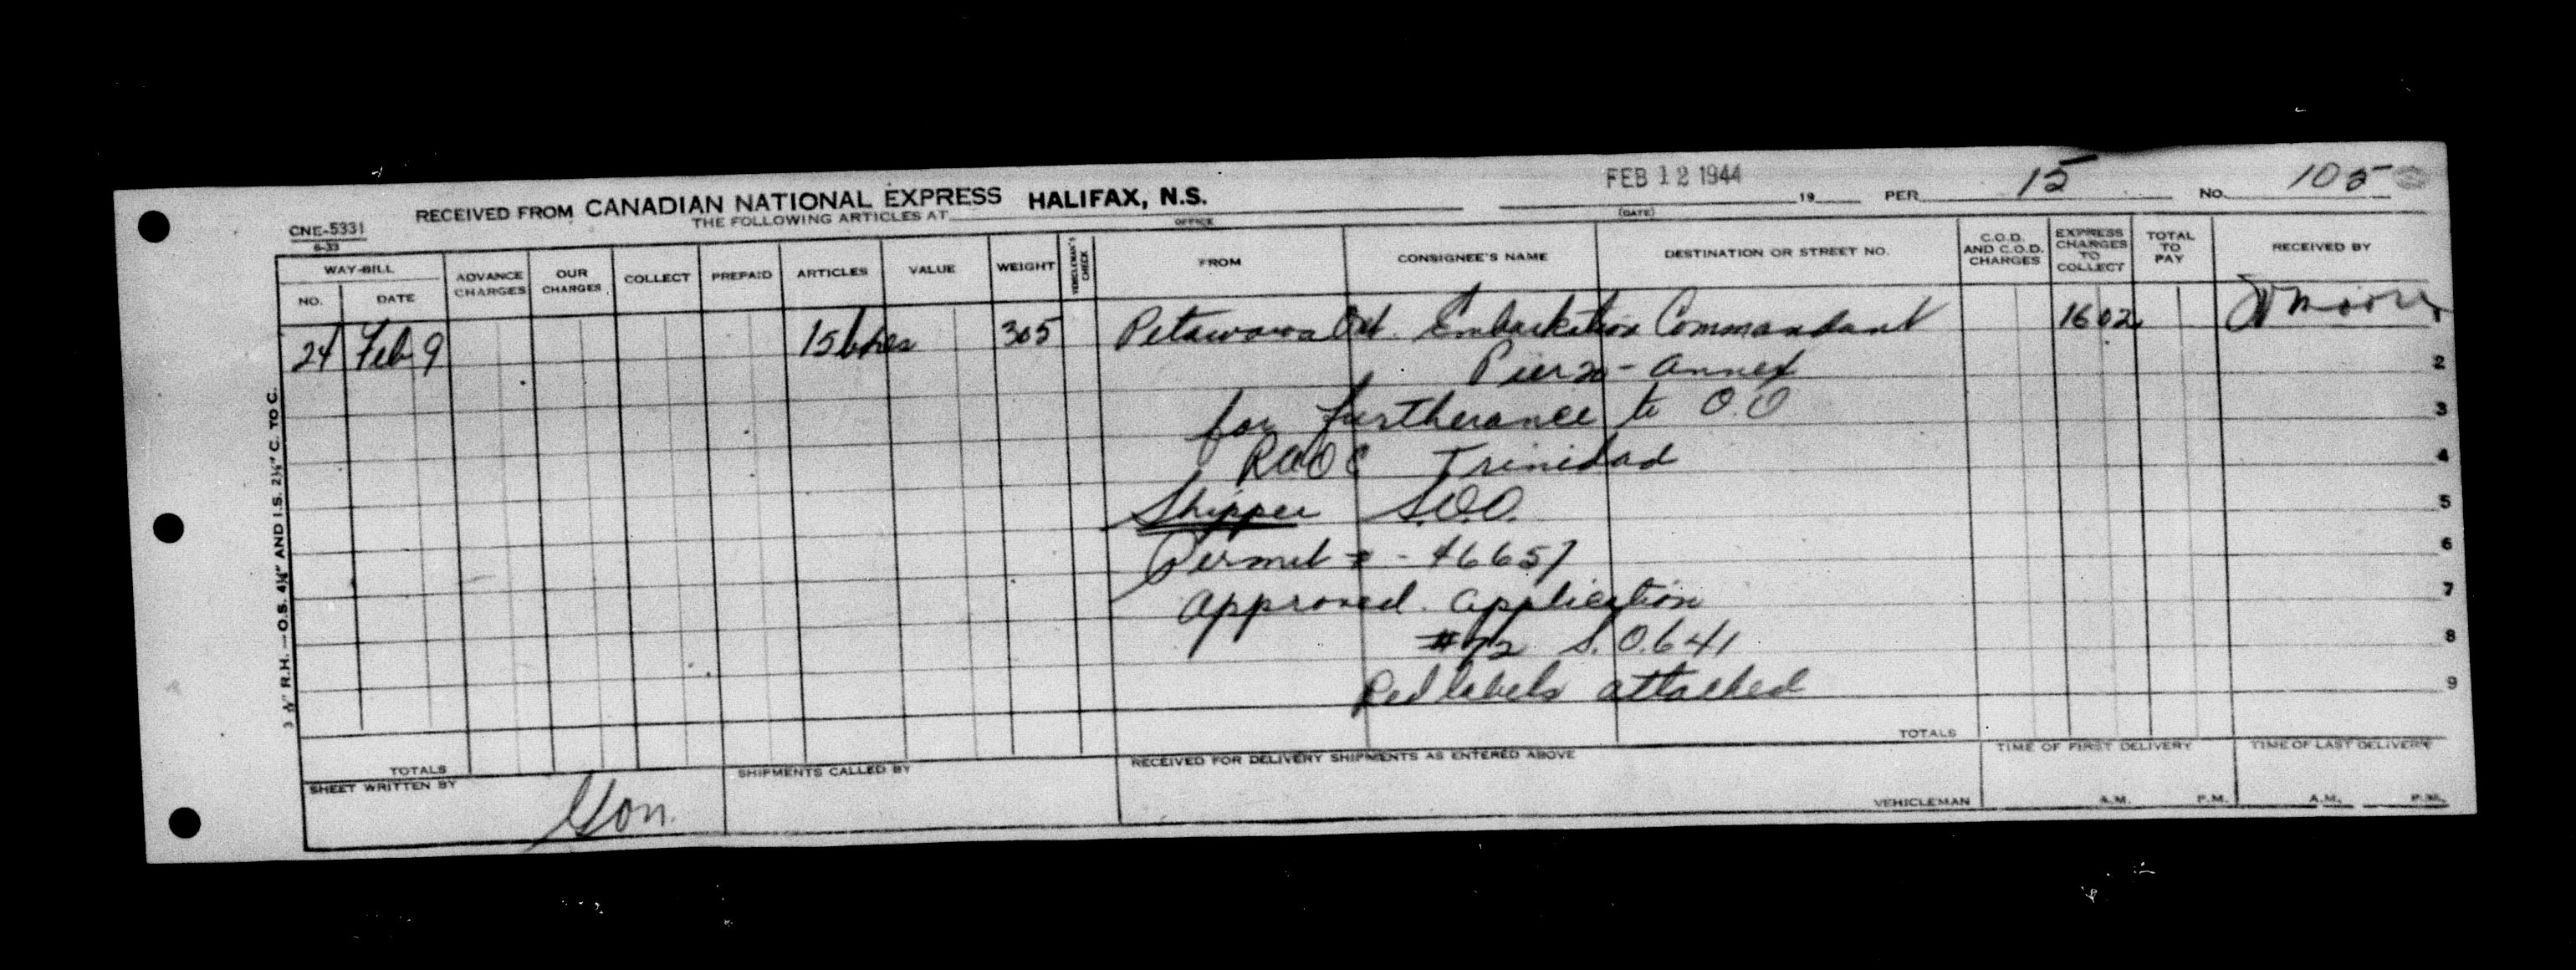 FEB 12 1944 19 PER 15 No. 105
CNE-5331
6-33
RECEIVED FROM CANADIAN NATIONAL EXPRESS HALIFAX, N.S.
THE FOLLOWING ARTICLES AT
OFFICE
(DATE)
WAY-BILL
NO. DATE
ADVANCE CHARGES
OUR CHARGES
COLLECT
PREPAID
ARTICLES
VALUE
WEIGHT
VEHICLEMAN'S CHECK
FROM
CONSIGNEE'S NAME
DESTINATION OR STREET NO.
C.O.D. AND C.O.D. CHARGES
EXPRESS CHARGES TO COLLECT
TOTAL TO PAY
RECEIVED BY
24 Feb 9 15 bxes 305 Petawawa Ont. Embarkation Commandant 1602 Moore 1
Pier 20 - Annex 2
for furtherance to O.O 3
RAOC Trinidad 4
Shipper S.O.O. 5
Permit # - 46657 6
Approved Application 7
#72 S.O.641 8
Red labels attached 9
3 ⅛" R.H.—O.S. 4¼" AND I.S. 2¼" C. TO C.
TOTALS
TOTALS
SHEET WRITTEN BY
SHIPMENTS CALLED BY
RECEIVED FOR DELIVERY SHIPMENTS AS ENTERED ABOVE
VEHICLEMAN
TIME OF FIRST DELIVERY
A.M. P.M.
TIME OF LAST DELIVERY
A.M. P.M.